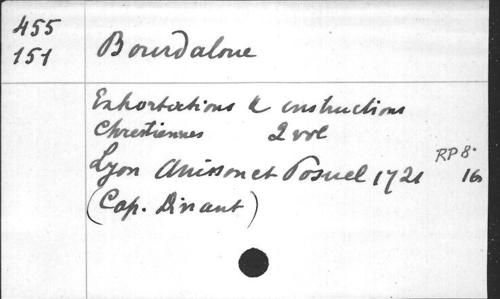 455
151
Bourdaloue
Exhortations & instructions
Chrestiennes 2 vol
Lyon Anisson et Posuel 1721
RP 8°
16
(Cap. Dinant)